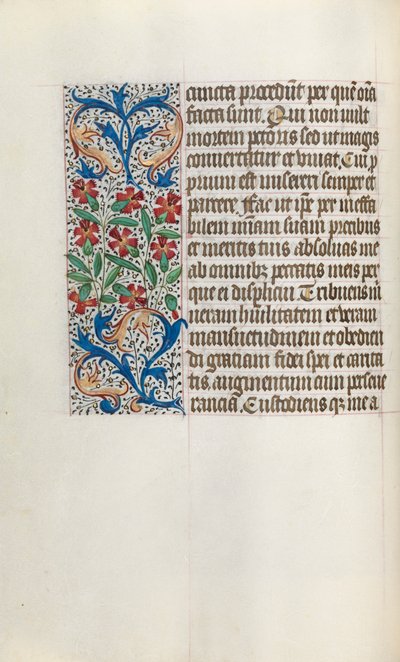 cuncta procedūt per quē oīa
facta sunt. Qui non uult
mortem pctoris sed ut magis
conuertatur et viuat. Cui p
prium est misereri semper et
parcere. Fac ut ip̄e per ineffa
bilem mīam suam precibus
et meritis tuis absoluas me
ab omnibꝫ peccatis meis per
que ei displicui. Tribuens in
meram humilitatem et veram
mansuetudinem et obedien
di gratiam fidei spei et carita
tis augmentum cum perseue
rancia. Custodiens qꝫ me a